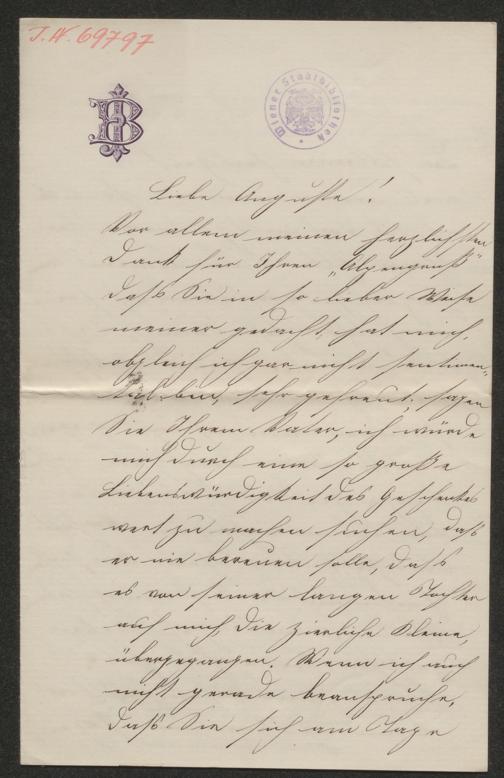 J.N. 69797
Wiener Stadtbibliothek
Liebe Auguste!
Vor allem meinen herzlichsten
Dank für Ihren „Alpengruß“
daß Sie in so lieber Weise
meiner gedacht, hat mich,
obgleich ich gar nicht sentimen-
tal bin, sehr gefreut; sagen
Sie Ihrem Vater, ich würde
mich durch eine so große
Liebenswürdigkeit des Geschenkes
wert zu machen suchen, daß
er nie bereuen solle, daß
es von seiner langen Tochter
auf mich, die zierliche Kleine,
übergegangen. Wenn ich auch
nicht gerade beanspruche,
daß Sie sich am Tage